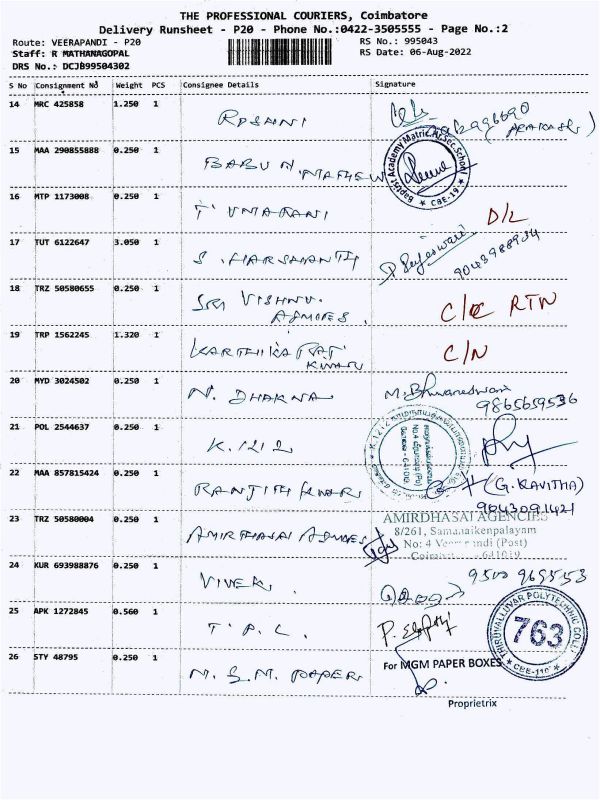 THE PROFESSIONAL COURIERS, Coimbatore
Delivery Runsheet - P20 - Phone No.:0422-3505555 - Page No.:2
Route: VEERAPANDI - P20
RS No.: 995043
Staff: R MATHANAGOPAL
RS Date: 06-Aug-2022
DRS No.: DCJB99504302
S No Consignment No Weight PCS Consignee Details Signature
14 MRC 425858 1.250 1 ROSHNI
15 MAA 290855888 0.250 1 BABU N MATHEW
Baptist Academy Matric.Hr.Sec.School
CBE-19
16 MTP 1173008 0.250 1 T UMARANI D/L
17 TUT 6122647 3.050 1 S. HARSHANTH
9043988934
18 TRZ 50580655 0.250 1 SRI VISHNU. C/C RTN
19 TRP 1562245 1.320 1 KARTHIKA C/N
20 MYD 3024502 0.250 1 N. DHARNA M. Bhuvaneswari
9865659536
21 POL 2544637 0.250 1 K.1212
22 MAA 857815424 0.250 1 RANJITH KUMAR (G. KAVITHA)
9043091421
23 TRZ 50580004 0.250 1 AMIRDHASAI
AMIRDHASAI AGENCIES
8/261, Samanaikenpalayam
24 KUR 693988876 0.250 1 VIVEK.
25 APK 1272845 0.560 1 T. P. L.
THIRUVALLUVAR POLYTECHNIC
763
26 STY 48795 0.250 1 M. G. M. PAPER
For MGM PAPER BOXES
Proprietrix